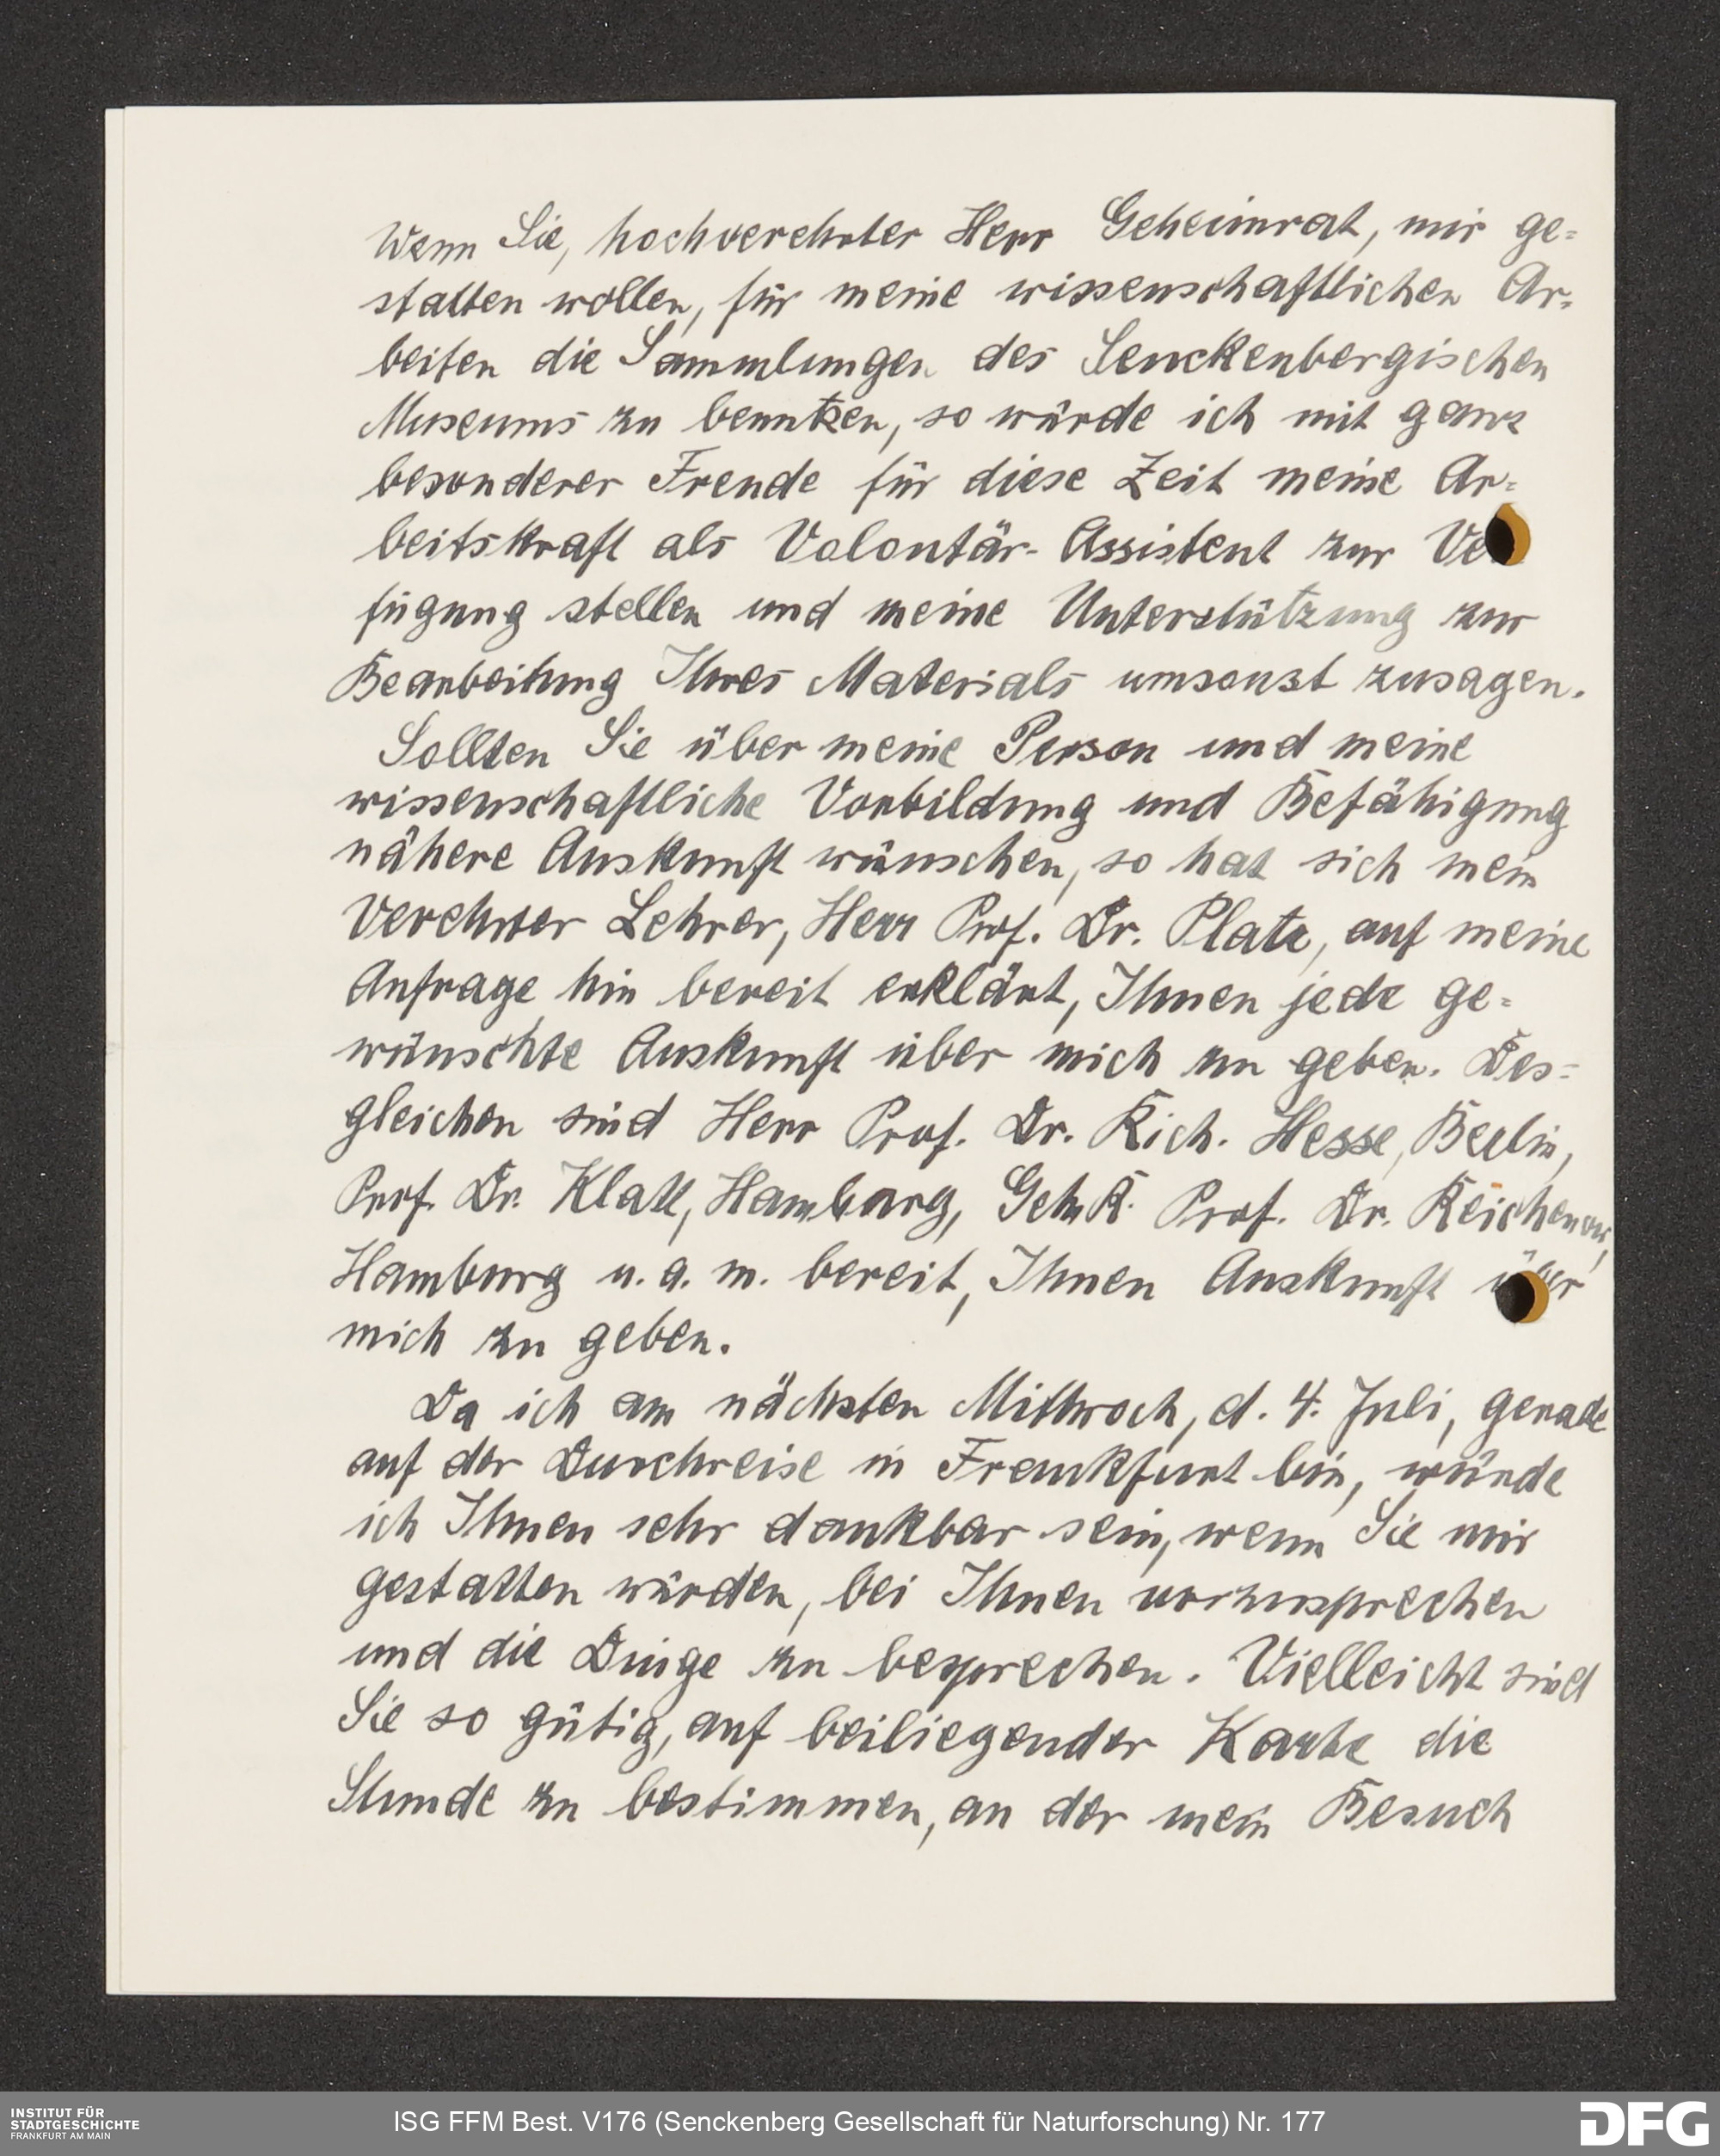 Wenn Sie, hochverehrter Herr Geheimrat, mir ge=
statten wollen, für meine wissenschaftlichen Ar=
beiten die Sammlungen des Senckenbergischen
Museums zu benutzen, so würde ich mit ganz
besonderer Freude für diese Zeit meine Ar=
beitskraft als Volontär-Assistent zur Ver
fügung stellen und meine Unterstützung zur
Bearbeitung Ihres Materials umsonst zusagen.
Sollten Sie über meine Person und meine
wissenschaftliche Vorbildung und Befähigung
nähere Auskunft wünschen, so hat sich mein
verehrter Lehrer, Herr Prof. Dr. Plate, auf meine
Anfrage hin bereit erklärt, Ihnen jede ge=
wünschte Auskunft über mich zu geben. Des=
gleichen sind Herr Prof. Dr. Rich. Hesse, Berlin,
Prof. Dr. Klatt, Hamburg, Geh. R. Prof. Dr. Reichenow,
Hamburg u. a. m. bereit, Ihnen Auskunft über
mich zu geben.
Da ich am nächsten Mittwoch, d. 4. Juli, gerade
auf der Durchreise in Frankfurt bin, würde
ich Ihnen sehr dankbar sein, wenn Sie mir
gestatten würden, bei Ihnen vorzusprechen
und die Dinge zu besprechen. Vielleicht sind
Sie so gütig, auf beiliegender Karte die
Stunde zu bestimmen, an der mein Besuch
INSTITUT FÜR
STADTGESCHICHTE
FRANKFURT AM MAIN
ISG FFM Best. V176 (Senckenberg Gesellschaft für Naturforschung) Nr. 177
DFG